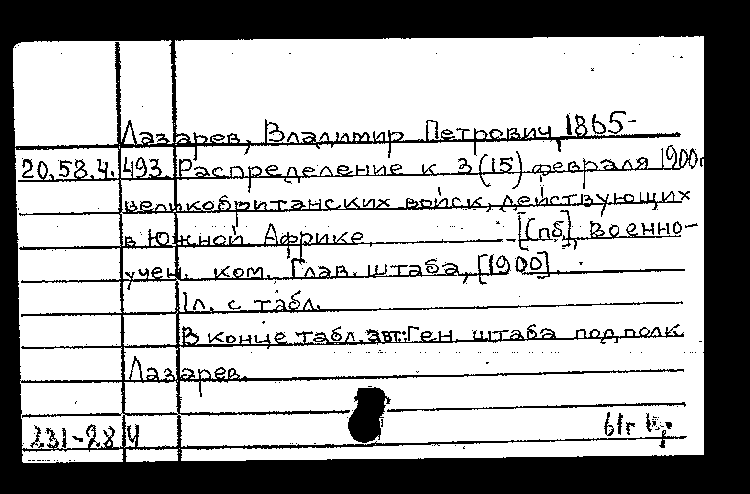 Лазарев, Владимир Петрович, 1865-
20.58.4.493 Распределение к 3(15) февраля 1900г
великобританских войск, действующих
в Южной Африке. [Спб], Военно-
учен. ком. Глав. штаба, [1900].
1л. с табл.
В конце табл. авт.: Ген. штаба подполк.
Лазарев.
231-28 61г